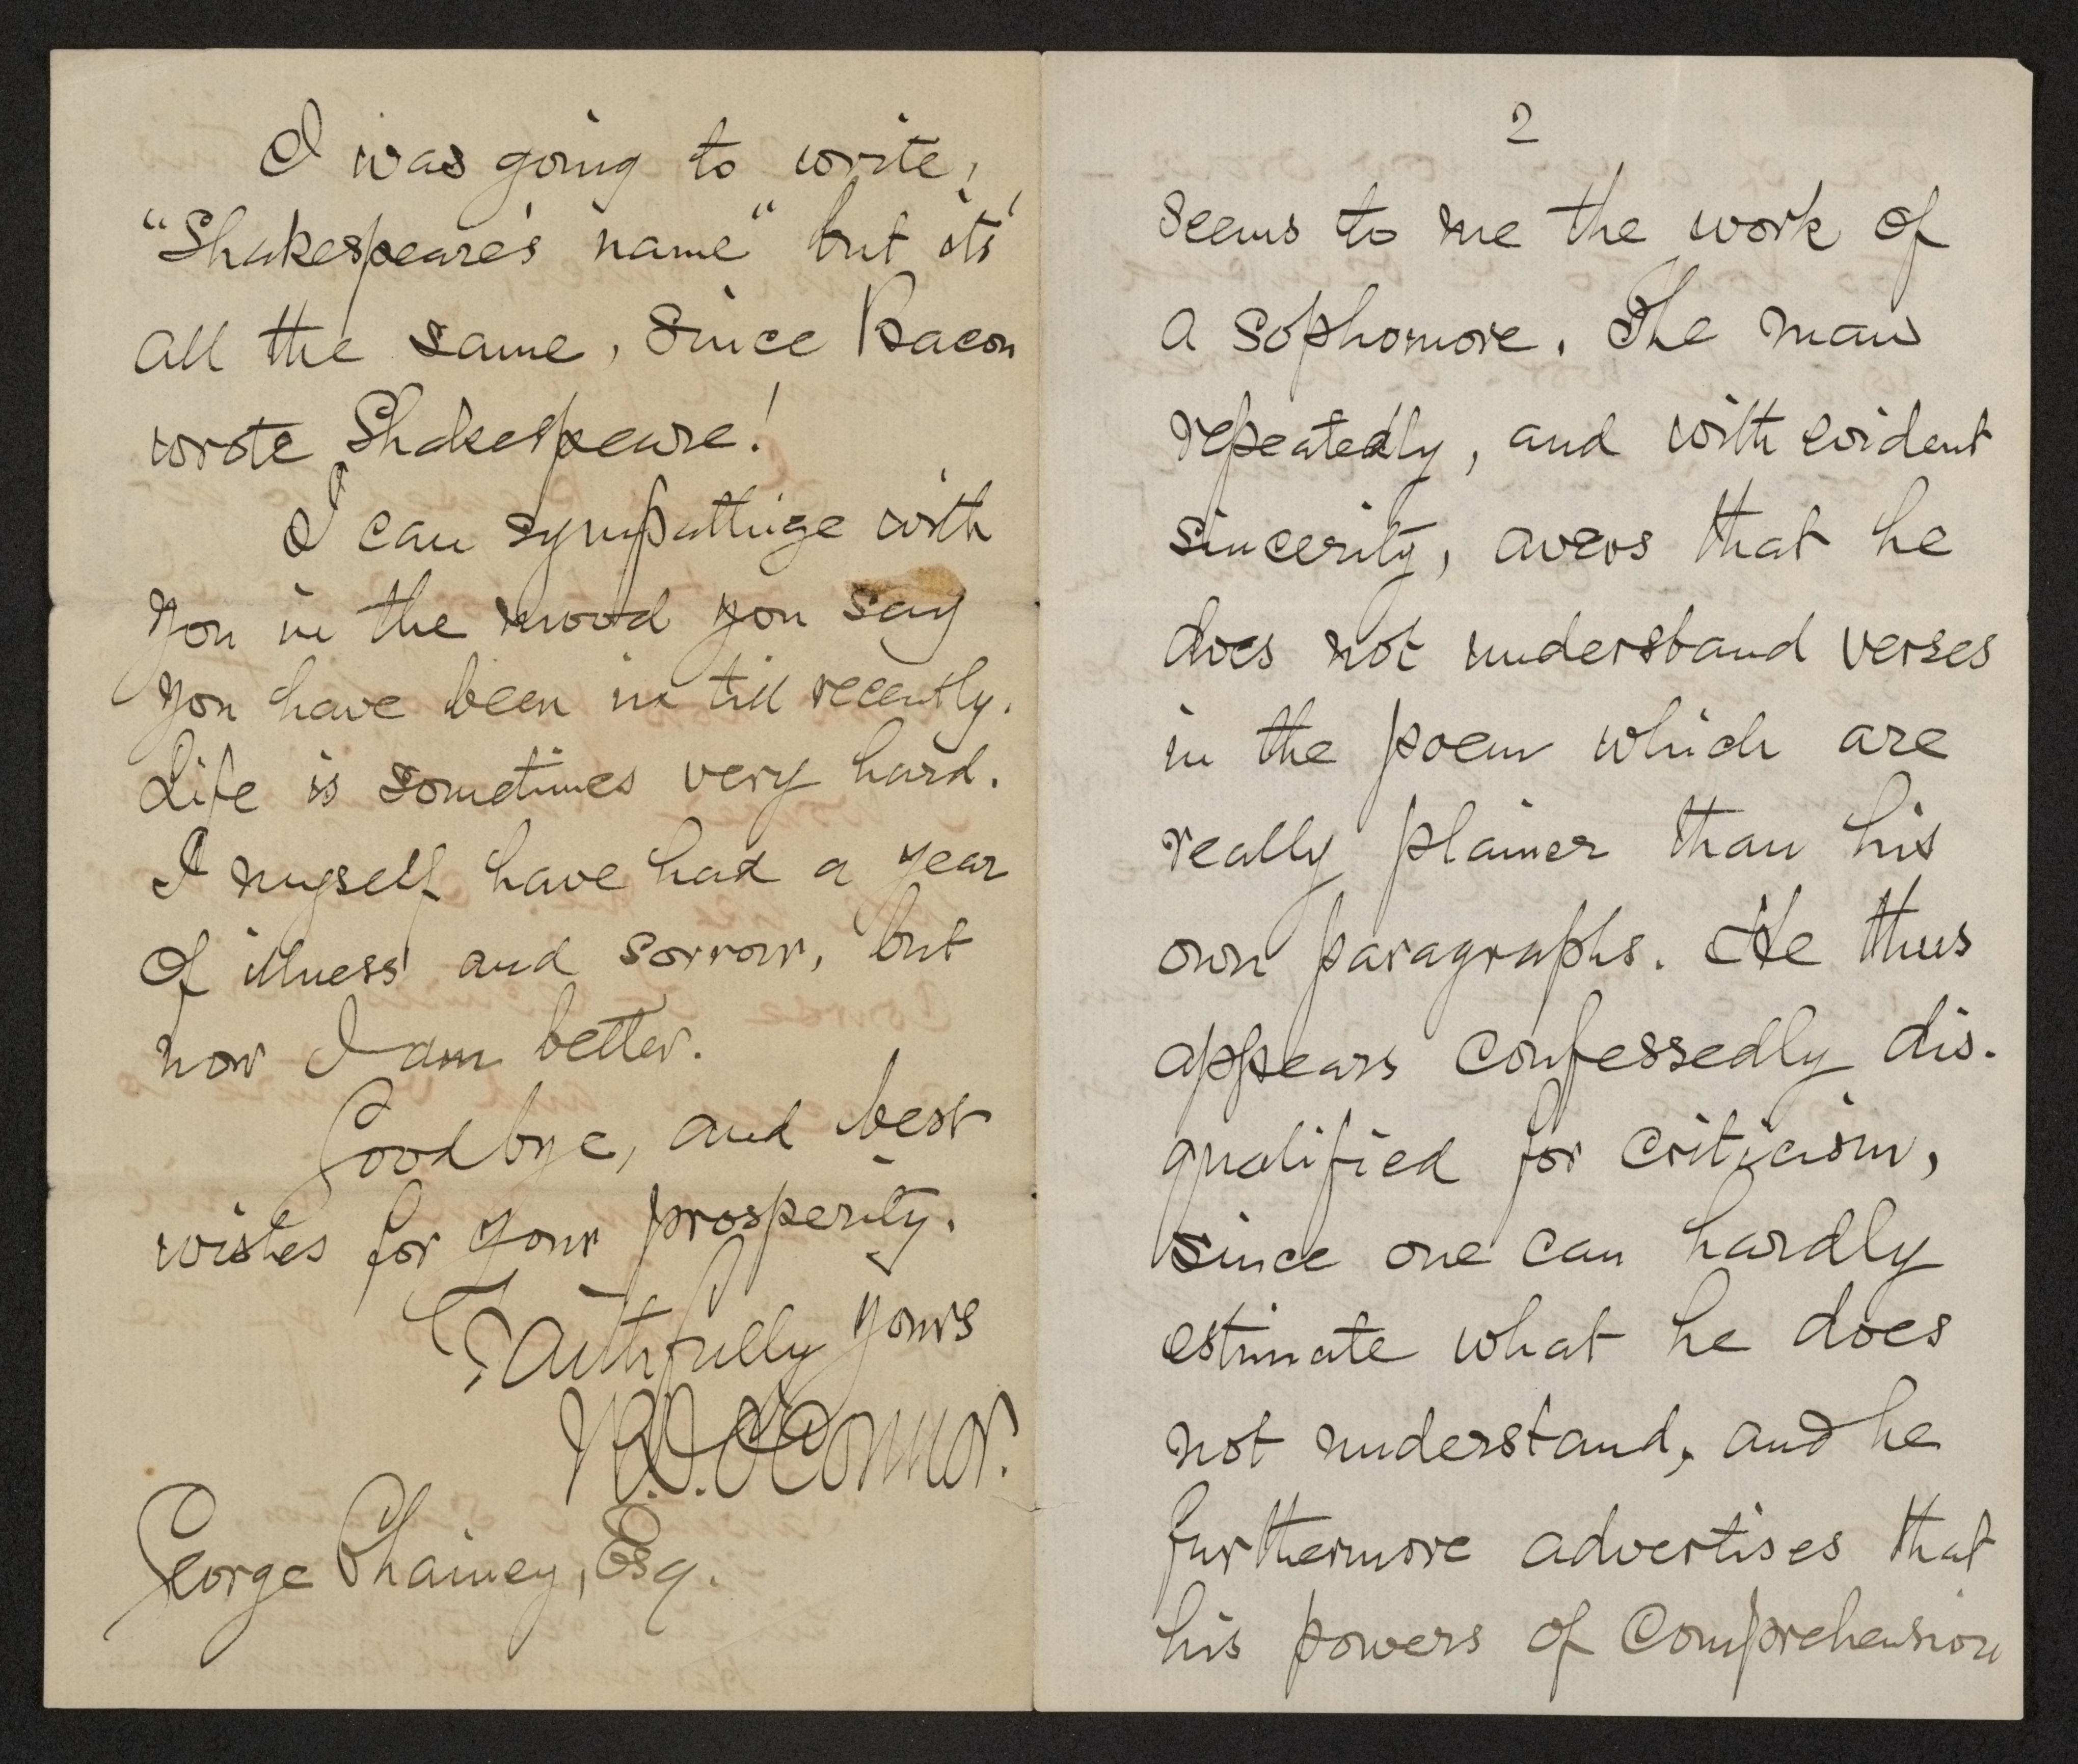 I was going to write,
"Shakespeare's name" but it's
all the same, since Bacon
wrote Shakespeare!
I can sympathize with
you in the mood you say
you have been in till recently.
Life is sometimes very hard.
I myself have had a year
of illness and sorrow, but
now I am better.
Goodbye, and best
wishes for your prosperity.
Faithfully yours
W.D. O'Connor.
George Chainey, Esq.
2
seems to me the work of
a sophomore. The man
repeatedly, and with evident
sincerity, avers that he
does not understand verses
in the poem which are
really plainer than his
own paragraphs. He thus
appears confessedly dis-
qualified for criticism,
since one can hardly
estimate what he does
not understand, and he
furthermore advertises that
his powers of comprehension